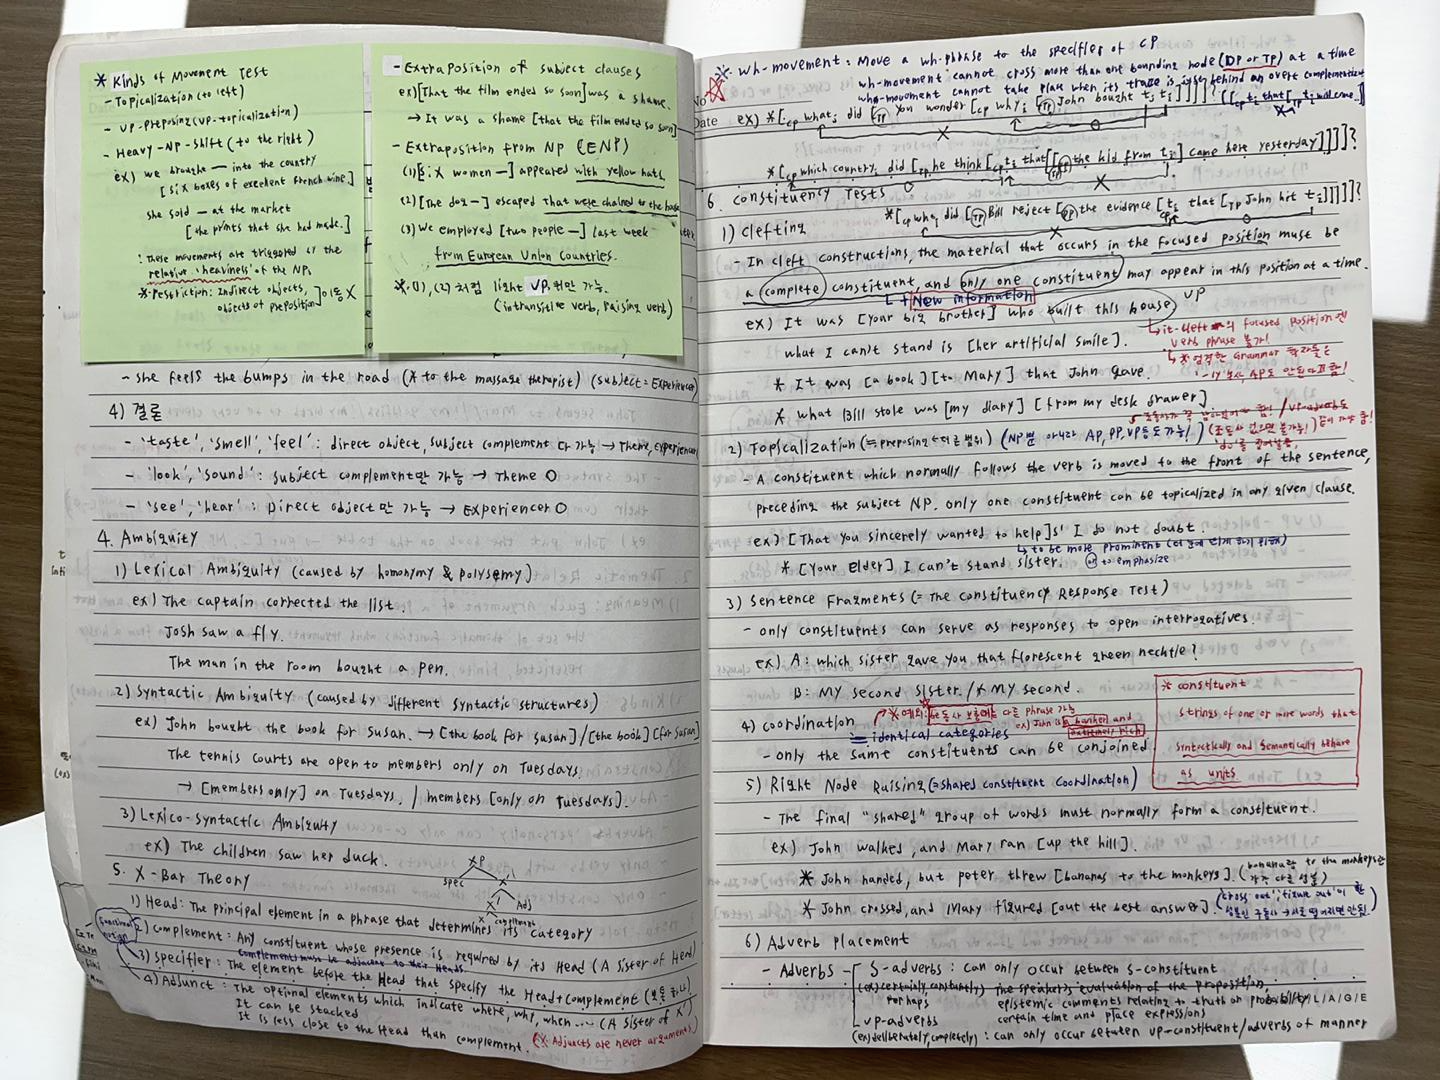 * Kinds of Movement Test
- Topicalization (to left)
- VP-preposing (VP-topicalization)
- Heavy-NP-Shift (to the right)
ex) we brought — into the country
[six boxes of excellent french wine.]
she sold — at the market
[the prints that she had made.]
: These movements are triggered by the
relative 'heaviness' of the NPs
* Restriction: Indirect objects,
objects of preposition] 이동 X
- Extraposition of subject clauses
ex) [That the film ended so soon] was a shame.
→ It was a shame [that the film ended so soon]
- Extraposition from NP (ENP)
(1) [six women —] appeared with yellow hats.
(2) [The dog —] escaped that were chained to the house
(3) We employed [two people —] last week
from European Union Countries.
* (1), (2) 처럼 light VP 뒤만 가능.
(intransitive verb, raising verb)
- she feels the bumps in the road (* to the massage therapist) (subject = Experiencer)
4) 결론
- 'taste', 'smell', 'feel' : direct object, subject complement 다 가능 → Theme, experiencer
- 'look', 'sound' : subject complement만 가능 → Theme O
- 'see', 'hear' : Direct object만 가능 → Experiencer O
4. Ambiguity
1) Lexical Ambiguity (caused by homonymy & polysemy)
ex) The captain corrected the list.
Josh saw a fly.
The man in the room bought a pen.
2) Syntactic Ambiguity (caused by different syntactic structures)
ex) John bought the book for Susan. → [the book for Susan] / [the book] [for Susan]
The tennis courts are open to members only on Tuesdays
→ [members only] on Tuesdays. / members [only on Tuesdays].
3) Lexico-syntactic Ambiguity
ex) The children saw her duck.
5. X-Bar Theory
XP
spec X'
X' Adj
X complement
1) Head: The principal element in a phrase that determines its category
2) complement : Any constituent whose presence is required by its Head (A sister of Head)
Complements must be adjacent to their Heads.
Functional notion
3) Specifier : The element before the Head that specify the Head + complement (보통 하나)
4) Adjunct : The optional elements which indicate where, why, when .... (A sister of X')
It can be stacked
It is less close to the Head than complement. (* Adjuncts are never arguments)
* Wh-movement : Move a wh-phrase to the specifier of CP
wh-movement cannot cross more than one bounding node (DP or TP) at a time
wh-movement cannot take place when its trace is left behind an overt complementizer
No
Date
ex) *[CP what; did [TP you wonder [CP why; [TP John bought ti ti]]]]? ([CP ti that [TP ti will come..])
*[CP which country; did [TP he think [CP ti that [TP [DP the kid from ti] came here yesterday]]]]]?
6. Constituency Tests
*[CP what; did [TP Bill reject [DP the evidence [CP ti that [TP John hit ti]]]]]?
1) Clefting
- In cleft constructions, the material that occurs in the focused position must be
a complete constituent, and only one constituent may appear in this position at a time.
+ New information
ex) It was [your big brother] who built this house VP
→ it-cleft의 focused position엔
verb phrase 불가!
what I can't stand is [her artificial smile].
* It was [a book] [to Mary] that John gave.
* what Bill stole was [my diary] [from my desk drawer]
2) Topicalization (= preposing ← 더 큰 범위) (NP뿐 아니라 AP, PP, VP등도 가능!)
- A constituent which normally follows the verb is moved to the front of the sentence,
preceding the subject NP. only one constituent can be topicalized in any given clause.
ex) [That you sincerely wanted to help]s' I do not doubt.
→ to be more prominent (더 눈에 띄게 하기 위해)
* [Your elder] I can't stand sister. or to emphasize
3) Sentence Fragments (= The Constituency Response Test)
- only constituents can serve as responses to open interrogatives.
ex) A: which sister gave you that florescent green necktie?
B: My second sister. / * My second.
* constituent
strings of one or more words that
syntactically and semantically behave
as units
4) coordination
* 예외: be동사 보어에는 다른 phrase 가능
ex) John is a banker and extremely rich
= identical categories
- only the same constituents can be conjoined
5) Right Node Raising (= shared constituent Coordination)
- The final "shared" group of words must normally form a constituent.
ex) John walked, and Mary ran [up the hill].
* John handed, but peter threw [bananas to the monkeys]. (bananas랑 to the monkeys는 각각 다른 성분)
* John crossed, and Mary figured [out the best answer]. ('cross out', 'figure out'이 한
6) Adverb placement
- Adverbs
S-adverbs : can only occur between S-constituent
(ex) certainly, constantly) The speaker's evaluation of the proposition,
perhaps
epistemic comments relating to truth or probability
certain time and place expressions
VP-adverbs
(ex) deliberately, completely) : can only occur between VP-constituent/adverbs of manner